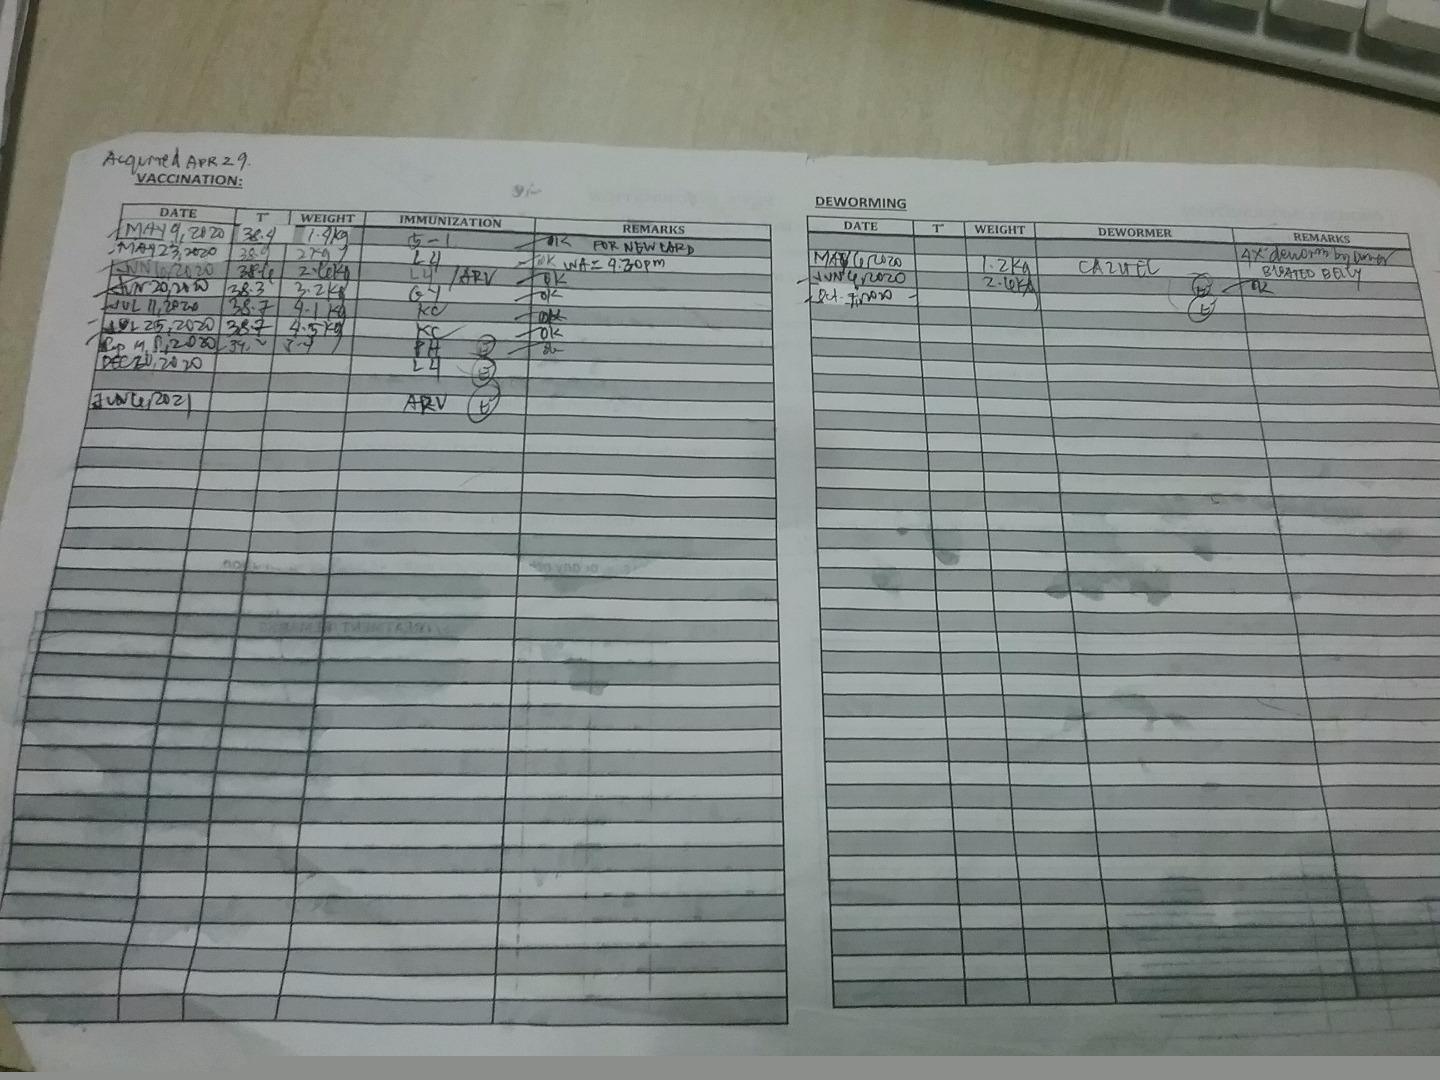 Acquired APR 29.
VACCINATION:
DATE T° WEIGHT IMMUNIZATION REMARKS
MAY 9, 2020 38.4 1.4kg 5-1 OK FOR NEW CARD
MAY 23, 2020 38.9 2kg L4 OK WA= 4:30pm
JUN 6, 2020 38.6 2.6kg L4 /ARV OK
JUN 20, 2020 38.3 3.2kg OK
JUL 11, 2020 38.7 4.1kg KC OK
JUL 25, 2020 38.7 4.5kg KC OK
2020
DEC 20, 2020 L4 E
JUN 6, 2021 ARV E
DEWORMING
DATE T° WEIGHT DEWORMER REMARKS
MAY 6, 2020 1.2kg CAZITEL 4x deworm by owner
BLOATED BELLY
JUN 6, 2020 2.6kg E OK
2020 E